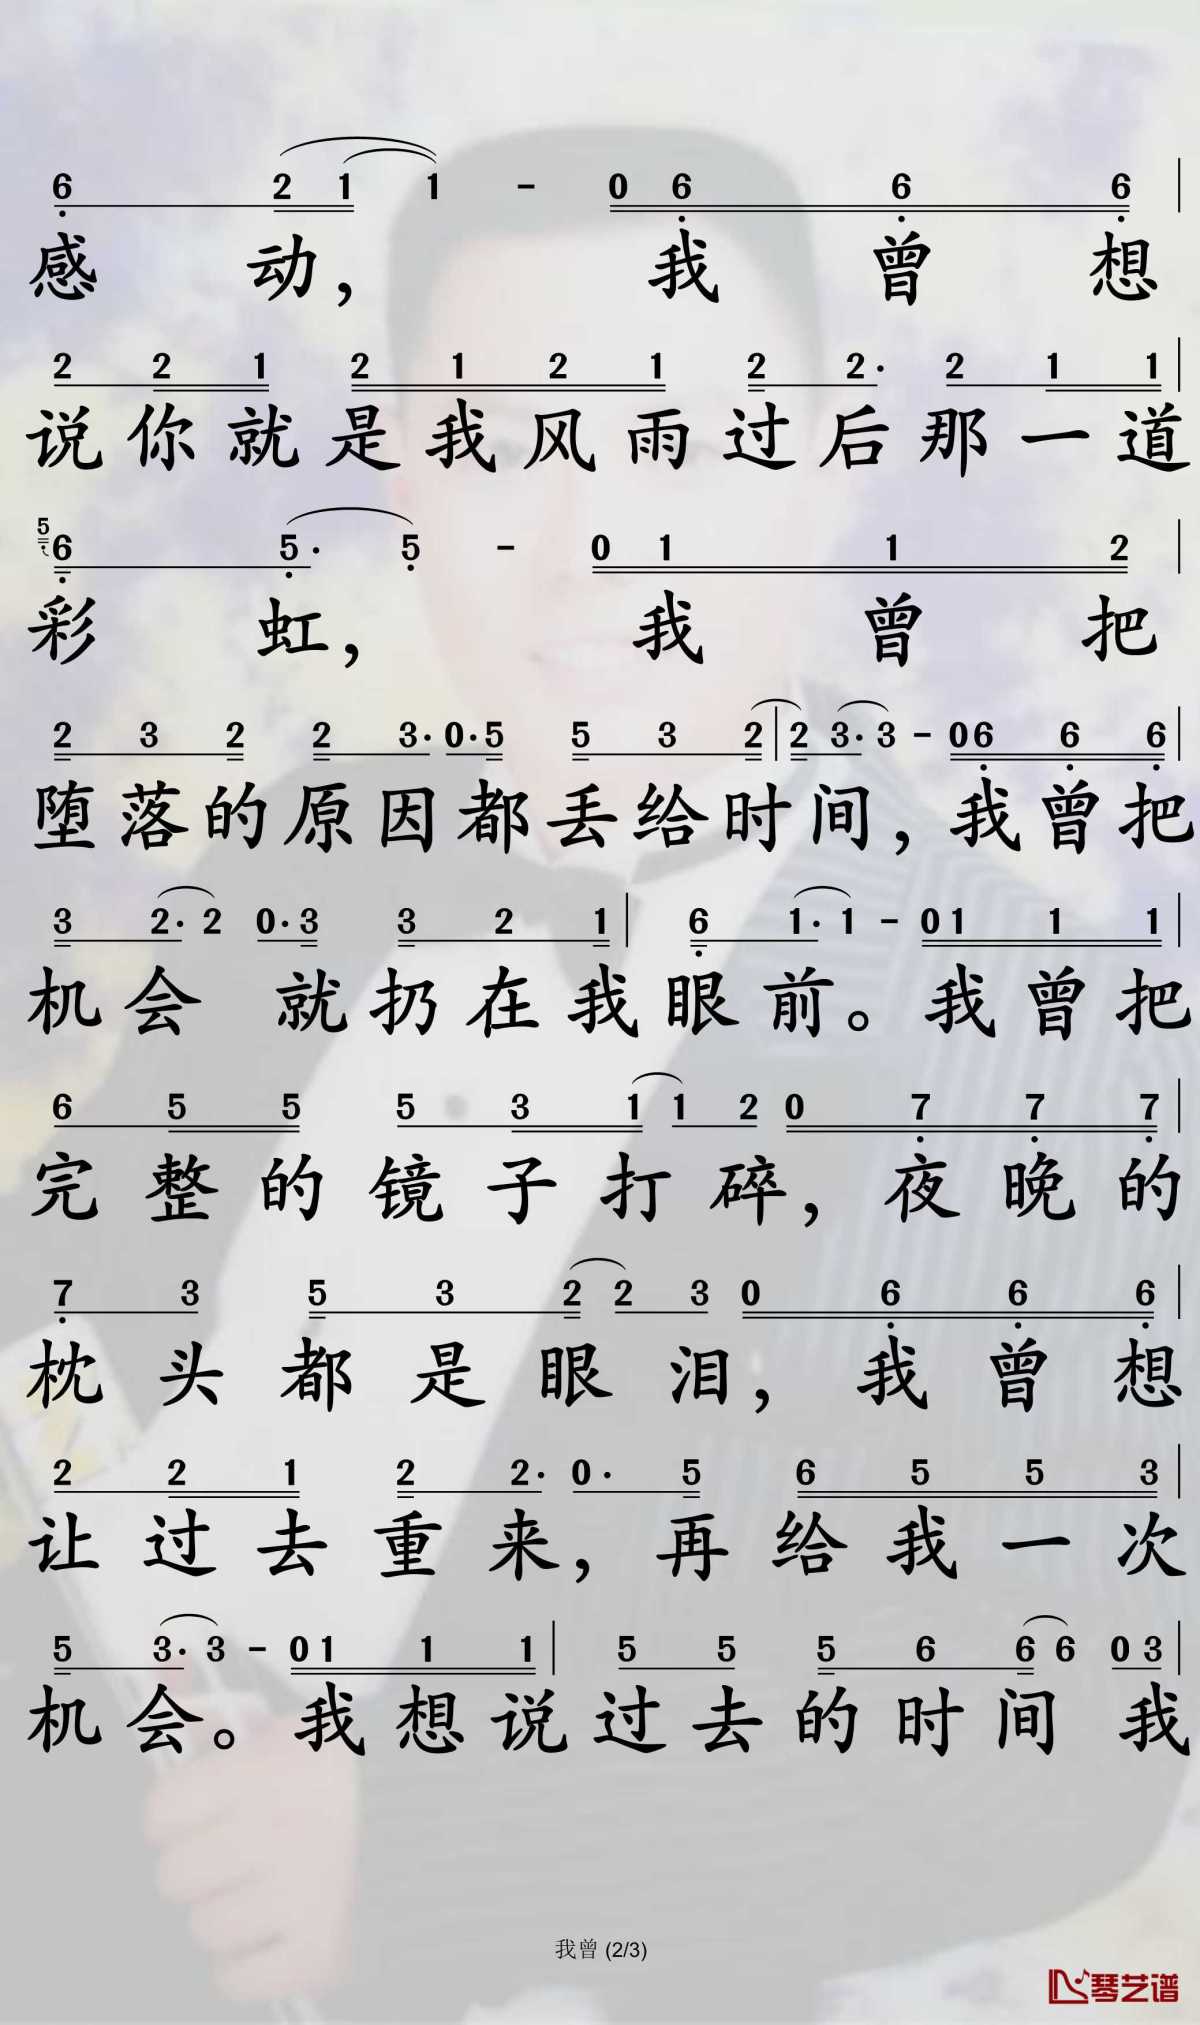 6 2 1 1 - 0 6 6 6
感动，我曾想
2 2 1 2 1 2 1 2 2· 2 1 1
说你就是我风雨过后那一道
5 6 5· 5 - 0 1 1 2
彩虹，我曾把
2 3 2 2 3· 0· 5 5 3 2 2 3· 3 - 0 6 6 6
堕落的原因都丢给时间，我曾把
3 2· 2 0· 3 3 2 1 6 1· 1 - 0 1 1 1
机会 就扔在我眼前。我曾把
6 5 5 5 3 1 1 2 0 7 7 7
完整的镜子打碎，夜晚的
7 3 5 3 2 2 3 0 6 6 6
枕头都是眼泪，我曾想
2 2 1 2 2· 0· 5 6 5 5 3
让过去重来，再给我一次
5 3· 3 - 0 1 1 1 5 5 5 6 6 6 0 3
机会。我想说过去的时间 我
我曾 (2/3)
琴艺谱